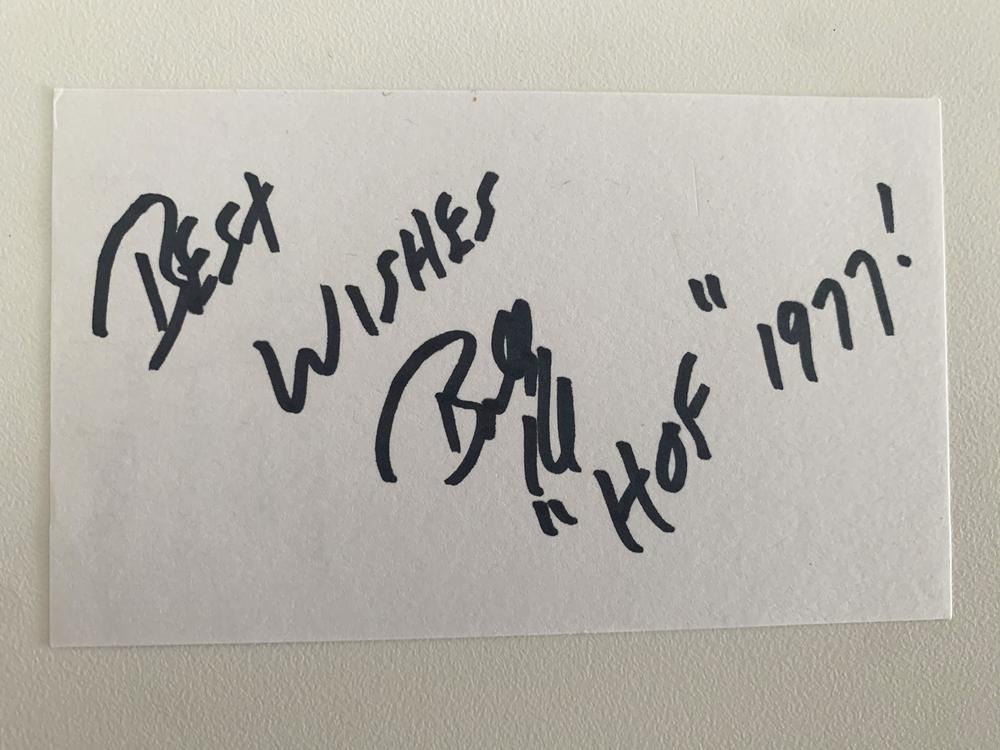 BEST
WISHES
"HOF" 1977!